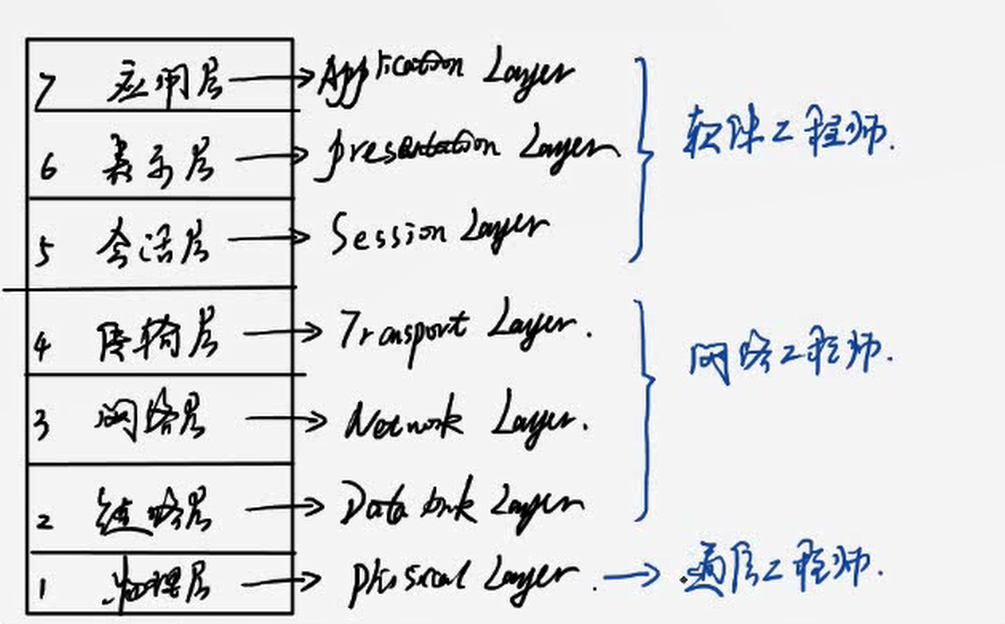 7 应用层 → Application Layer
6 表示层 → presentation Layer
软件工程师.
5 会话层 → Session Layer
4 传输层 → Transport Layer.
网络工程师.
3 网络层 → Network Layer.
2 链路层 → Data link Layer
1 物理层 → Phisical Layer. → 通信工程师.